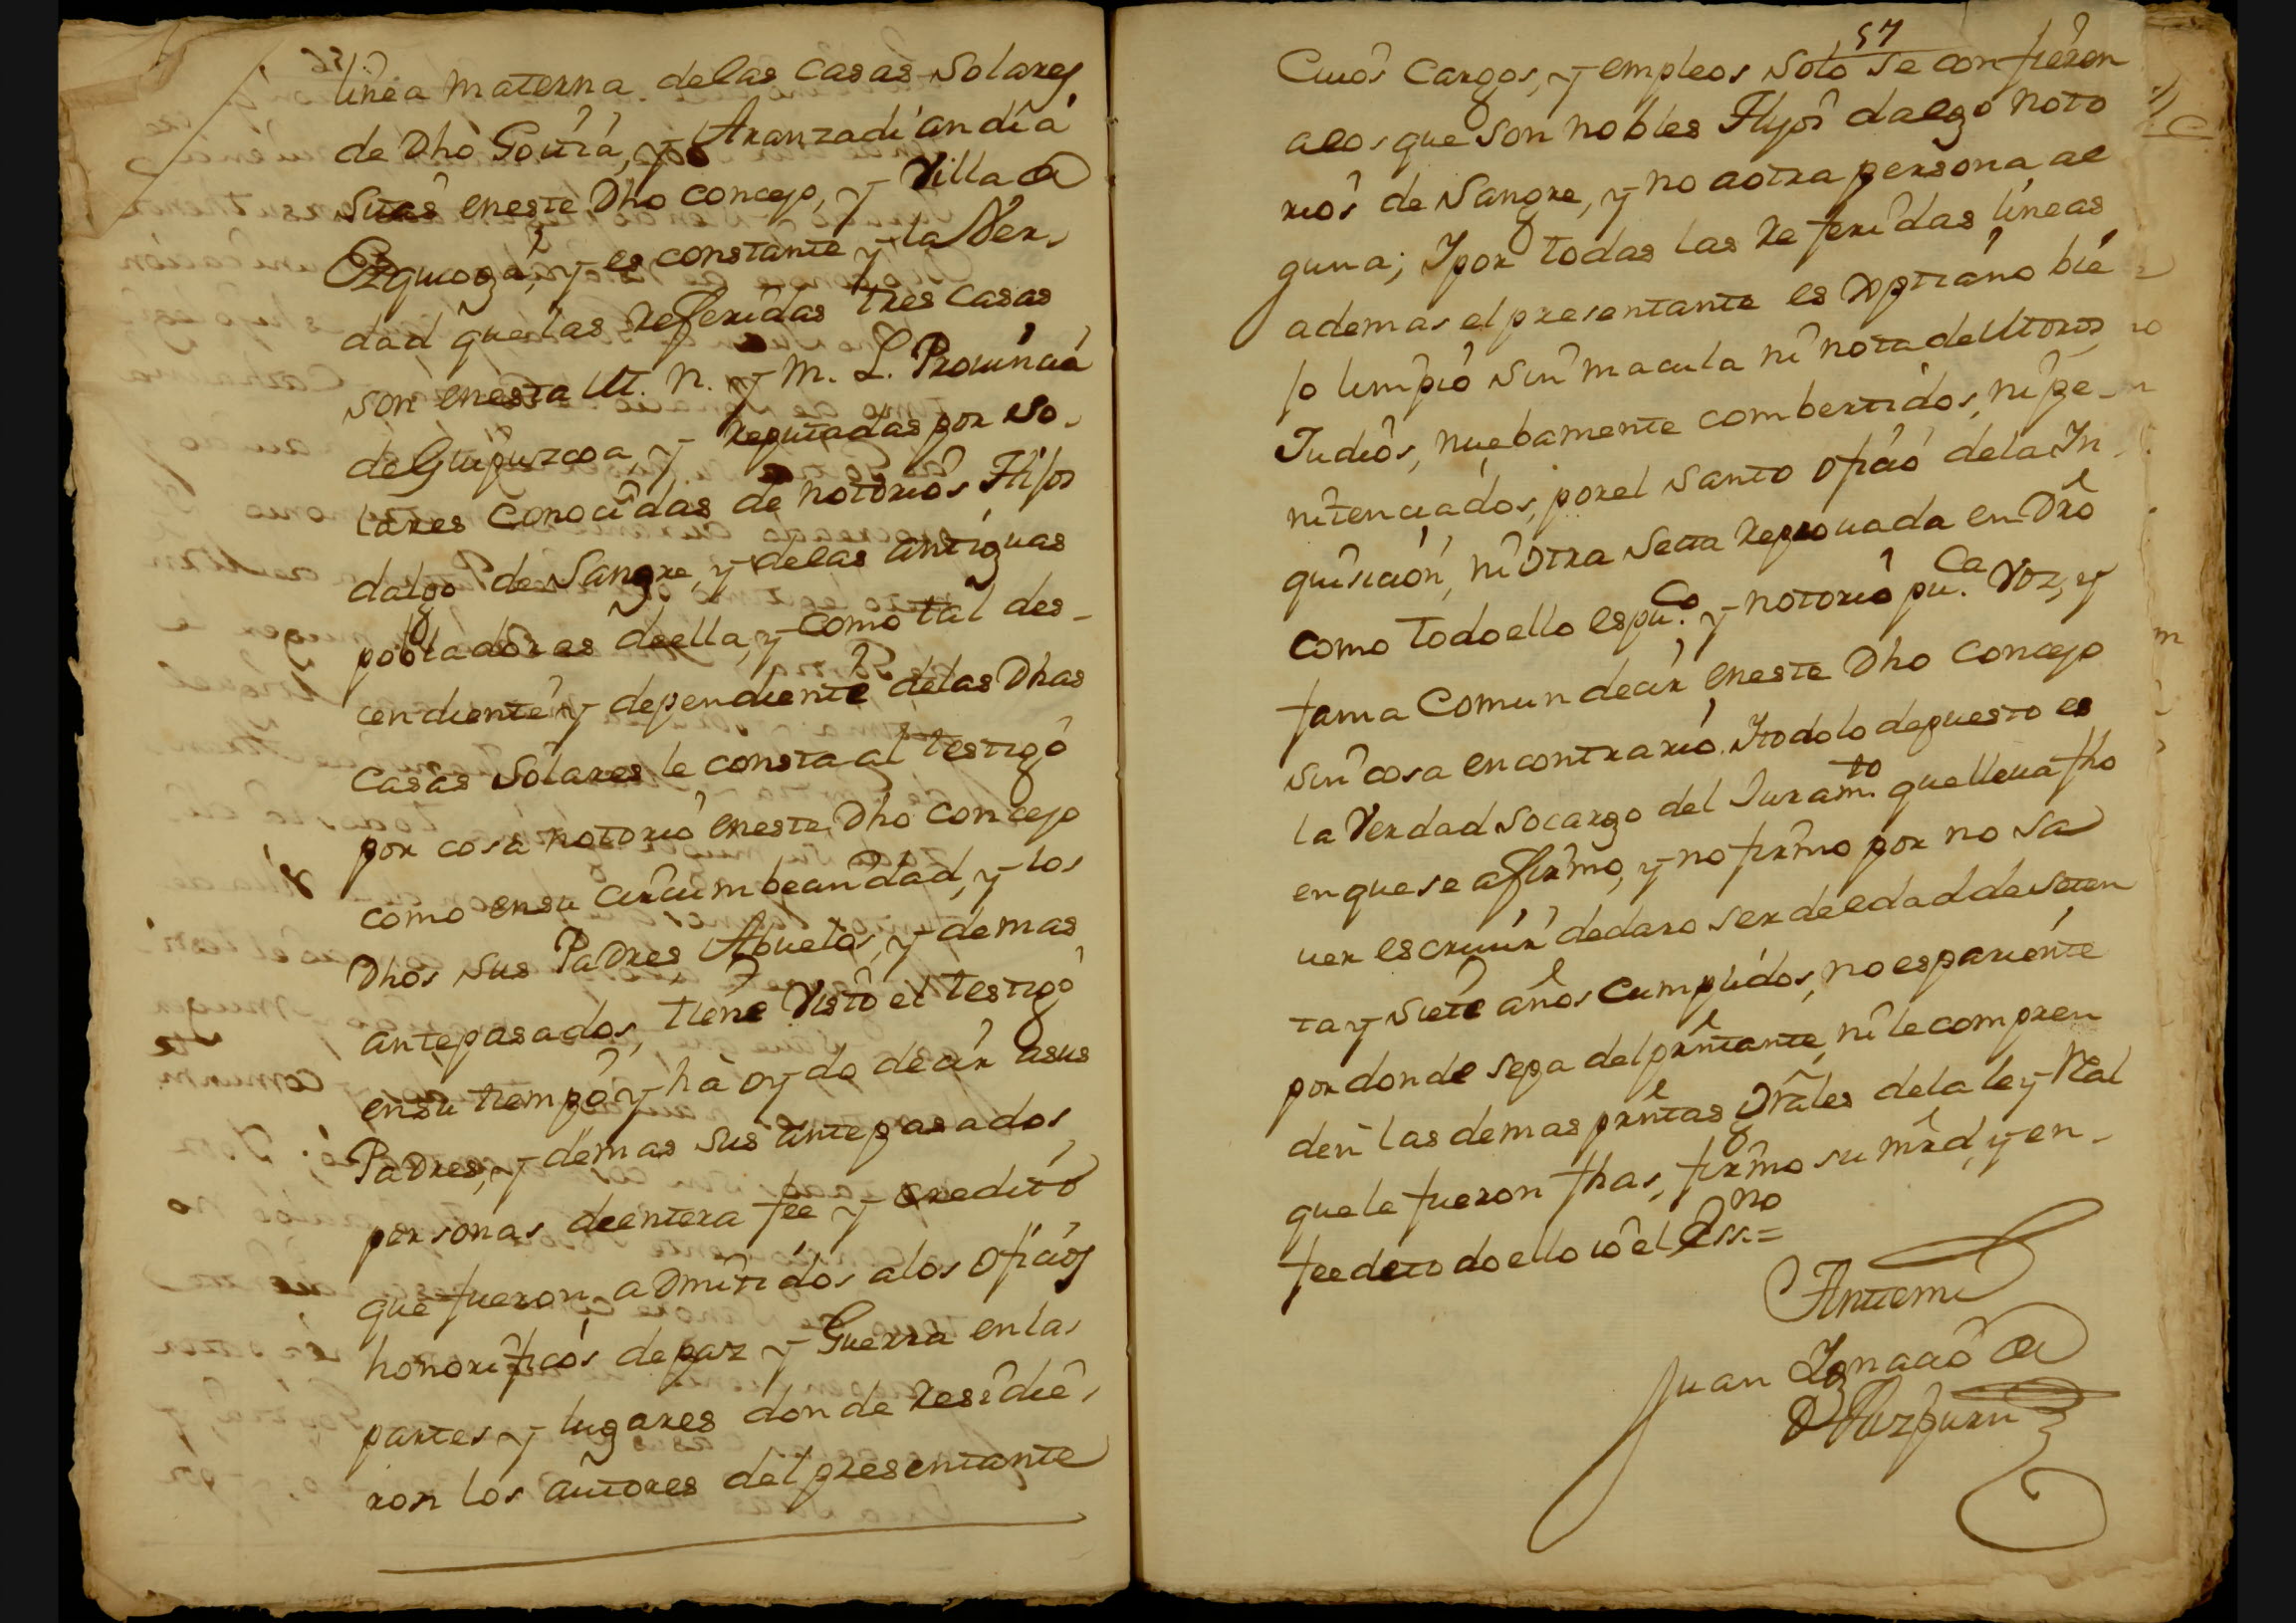 linea materna delas Casas Solares
de Dho Goura, y Aranzadi andia
sitas eneste Dho concejo, y Villa de
Ezquioga, y es constante y la Ver-
dad que las Referidas tres casas
son enesta M. N. y M. L. Prouincia
de Guipuzcoa y Reputadas por so-
lares Conocidas de notorios Hijos
dalgo de Sangre, y delas antiguas
pobladores deella, y como tal des-
cendiente y dependiente delas Dhas
casas Solares le consta al testigo
por cosa notorio eneste Dho Concejo
como ensu circumbecindad, y los
Dhos sus Padres Abuelos, y demas
antepasados, tiene Visto el testigo
ensu tiempo y ha oydo decir asus
Padres, y demas sus antepasados
personas deentera fee y credito
que fueron admitidos alos oficios
honorificos depaz y Guerra enlas
partes y lugares donde Residie-
ron los autores del presentante
57
Cuios Cargos, y empleos solo se confieren
alos que son nobles Hijos dalgo noto
rios de Sangre, y no aotra persona al
guna; Ipor todas las Referidas lineas
ademas el presentante es Xptiano bie
jo limpio sin macula ni nota de Moros,
Judios, nuebamente combertidos, ni pe-
nitenciados, porel Santo oficio dela In
quisicion, ni otra secta Reprouada en Dro
como todoello espu.co y notorio pu.ca Voz, y
fama Comun decir eneste Dho Concejo
sin cosa encontrario. Itodolo depuesto es
la Verdad socargo del Juram.to quelleua fho
enquese afirmo, y nofirmo por no sa
uer escriuir declaro ser deedad de seten
ta y siete años Cumplidos, no espariente
pordonde sepa del presntante, ni le compren
den las demas prntas Grales dela ley Real
quele fueron fhas, firmo su mrd, y en-
fee detodoello io el Ess.no =
Antemi
Juan Ignacio de
Aizpuru